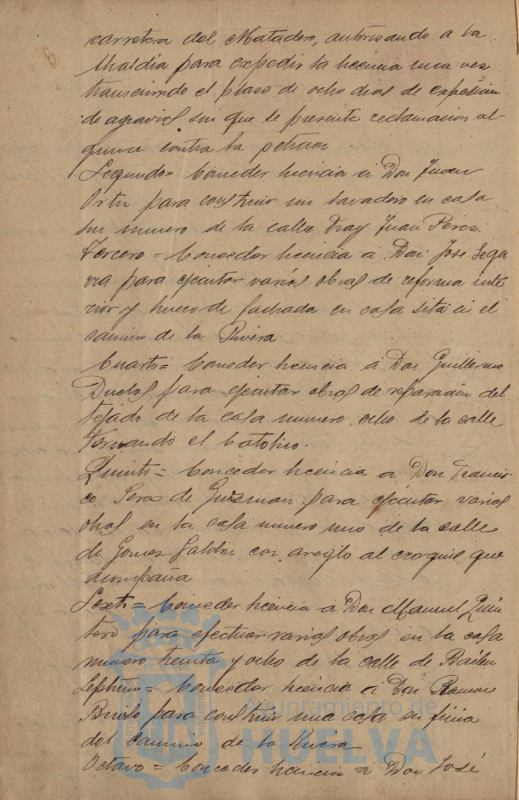 carretera del Matadero, autorisando a la
Alcaldia para expedir la licencia una ves
transcurrido el plaso de ocho dias de exposicion
de agravios sin que se presente reclamacion al-
guna contra la peticion
Segundo= Conceder licencia á Don Juan
Ortiz para construir un lavadero en casa
sin numero de la calle Fray Juan Peres.
Tercero= Conceder licencia á Don José Sega
rra para ejecutar varias obras de reforma inte
rior y hueco de fachada en casa sita en el
camino de la Rivera
Cuarto= Conceder licencia á Don Guillermo
para ejecutar obras de reparacion del
tejado de la casa numero ocho de la calle
Fernando el Catolico.
Quinto= Conceder licencia á Don Francis-
co Peres de Guzman para ejecutar varias
obras en la casa numero uno de la calle
de Gomes Jaldon con areglo al croquis que
Sexto= Conceder licencia á Don Manuel Quin
tero para efectuar varias obras en la casa
numero treinta y ocho de la calle de Bailen
Septimo= Conceder licencia á Don Ramon
para construir una casa en finca
del camino de la Rivera
Octavo= Conceder licencia á Don José
Ayuntamiento de
HUELVA